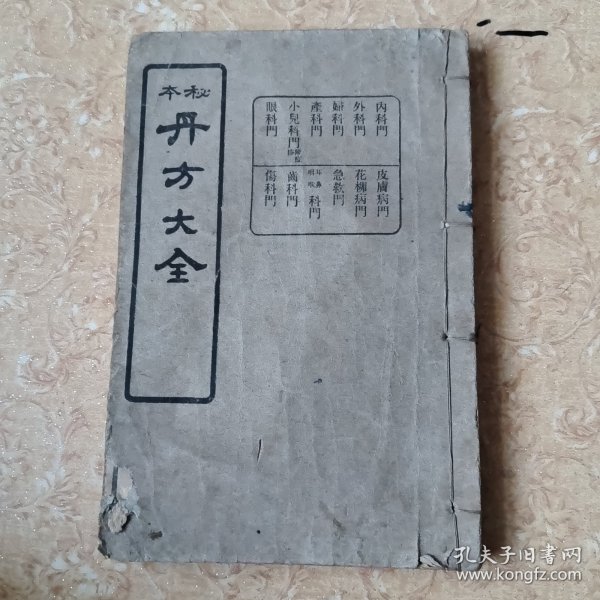 秘本
丹方大全
內科門
外科門
婦科門
產科門
小兒科門
眼科門
皮膚病門
花柳病門
急救門
耳鼻咽喉科門
齒科門
傷科門
孔夫子旧书网
www.kongfz.com